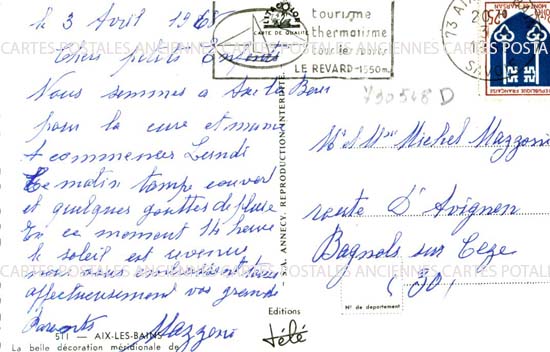 le 3 Avril 1968
Chers petits Enfants
Nous sommes a Aix les Bains
pour la cure et
commencer Lundi
Ce matin temps couvert
et quelques gouttes de pluie
En ce moment 14 heure
le soleil est revenu
nous vous embrassent tous
affectueusement vos grands
Parents Mazzoni
511 — AIX-LES-BAINS
La belle décoration méridionale de
Editions
télé
S.A. ANNECY. REPRODUCTION INTERDITE.
CARTE DE QUALITÉ
tourisme
thermalisme
LE REVARD-1550m
73 AIX
20
3
SAVOIE
REPUBLIQUE FRANCAISE
0,25
790548 D
Mr et Mme Michel Mazzoni
route D'Avignon
Bagnols sur Ceze
(30)
N° de département
CARTES POSTALES ANCIENNES CARTES POSTALES ANCIENNES CARTES POSTALES